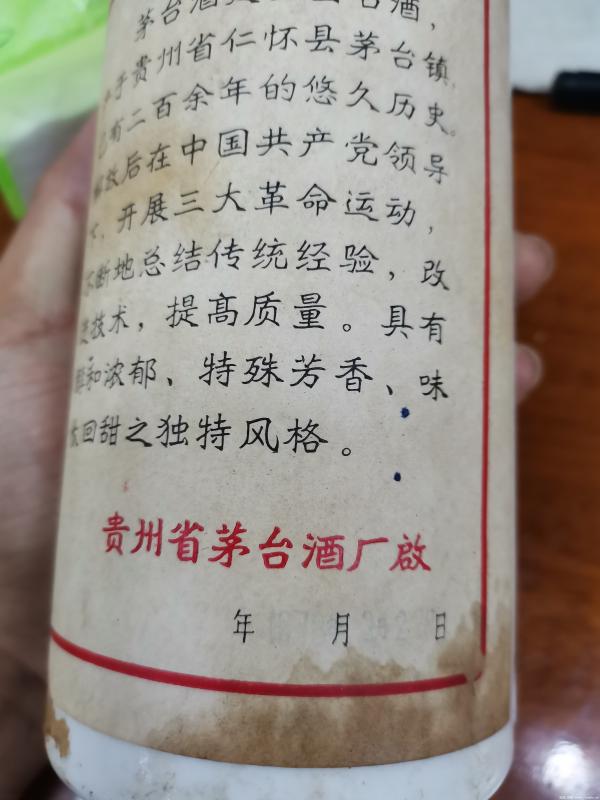 茅台酒
于贵州省仁怀县茅台镇,
已有二百余年的悠久历史。
放后在中国共产党领导
开展三大革命运动,
断地总结传统经验,改
技术,提高质量。具有
和浓郁、特殊芳香、味
回甜之独特风格。
贵州省茅台酒厂啟
年 月 日